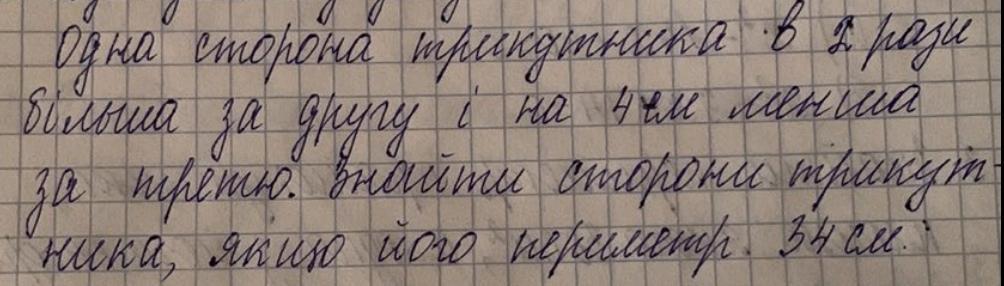 Одна сторона трикутника в 2 рази
більша за другу і на 4 см менша
за третю. Знайти сторони трикут
ника, якщо його периметр. 34 см.